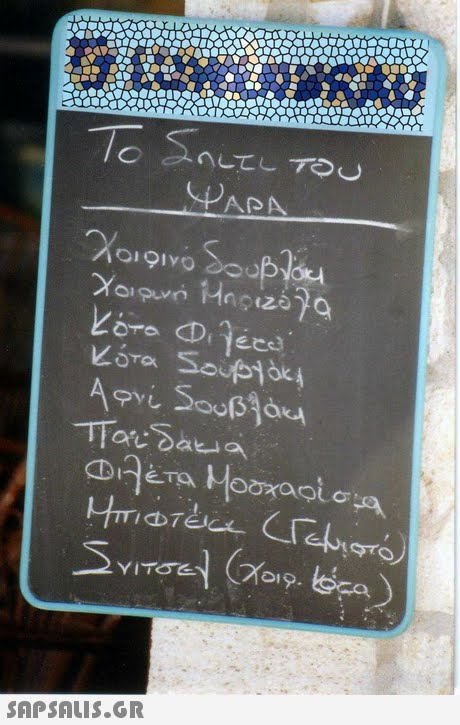 Το Σπιτι του
ΨΑΡΑ
Χοιρινό Σουβλάκι
Χοιρινή Μπριζόλα
Κότα Φιλέτα
Κότα Σουβλάκι
Αρνί Σουβλάκι
Παϊδάκια
Φιλέτα Μοσχαρίσια
Μπιφτέκι (Γεμιστό)
Σνιτσελ (χοιρ. κότα)
SAPSALIS.GR